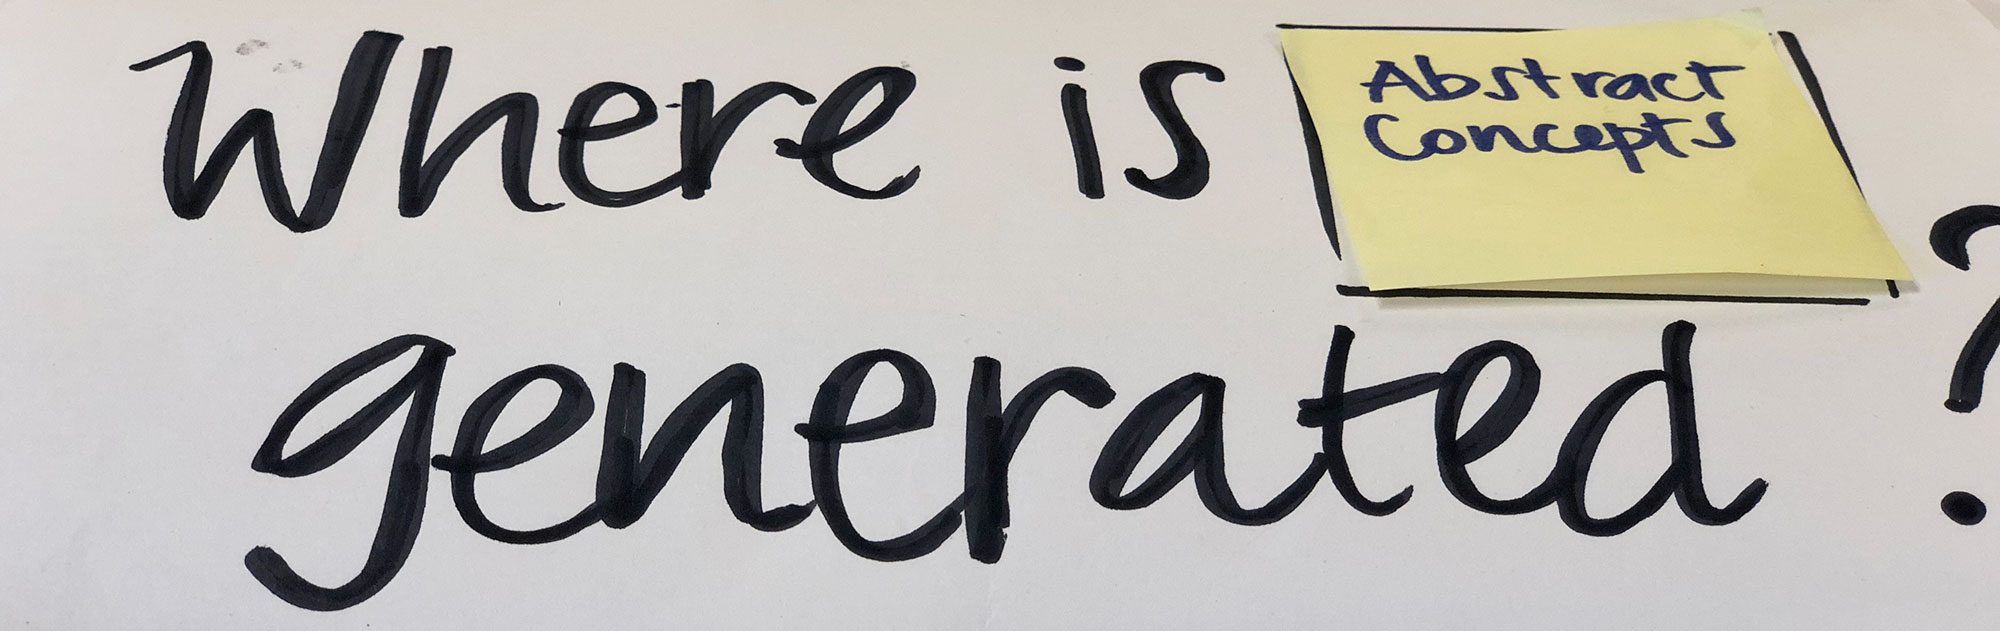 Where is
Abstract
Concepts
generated?